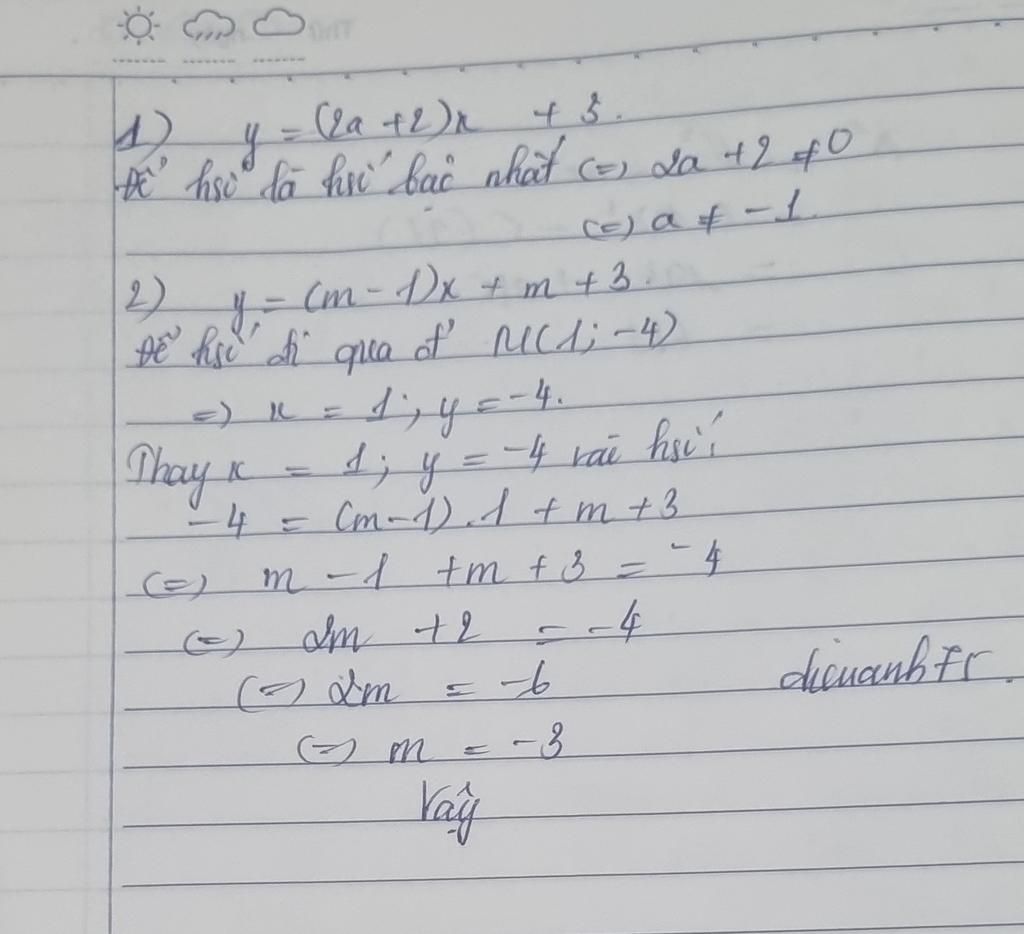 1) y = (2a + 2)x + 3.
Để hsố là hsố bậc nhất (=) 2a + 2 ≠ 0
(=) a ≠ -1
2) y = (m - 1)x + m + 3.
Để hsố đi qua đ' M(1; -4)
=) x = 1; y = -4.
Thay x = 1; y = -4 vào hsố:
-4 = (m-1).1 + m + 3
(=) m - 1 + m + 3 = -4
(=) 2m + 2 = -4
(=) 2m = -6
dieuanh
(=) m = -3
Vậy